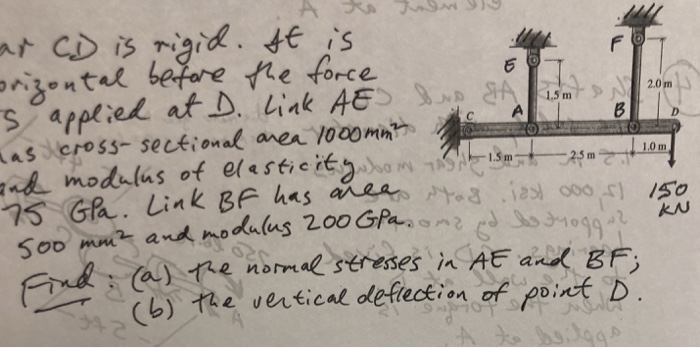 ar CD is rigid. It is
orizontal before the force
s applied at D. Link AE
has cross-sectional area 1000 mm²
and modulus of elasticity
75 GPa. Link BF has area
500 mm² and modulus 200 GPa.
Find: (a) the normal stresses in AE and BF;
(b) the vertical deflection of point D.
F
E
2.0 m
1.5 m
C
A
B
D
1.5 m
2.5 m
1.0 m
150
KN